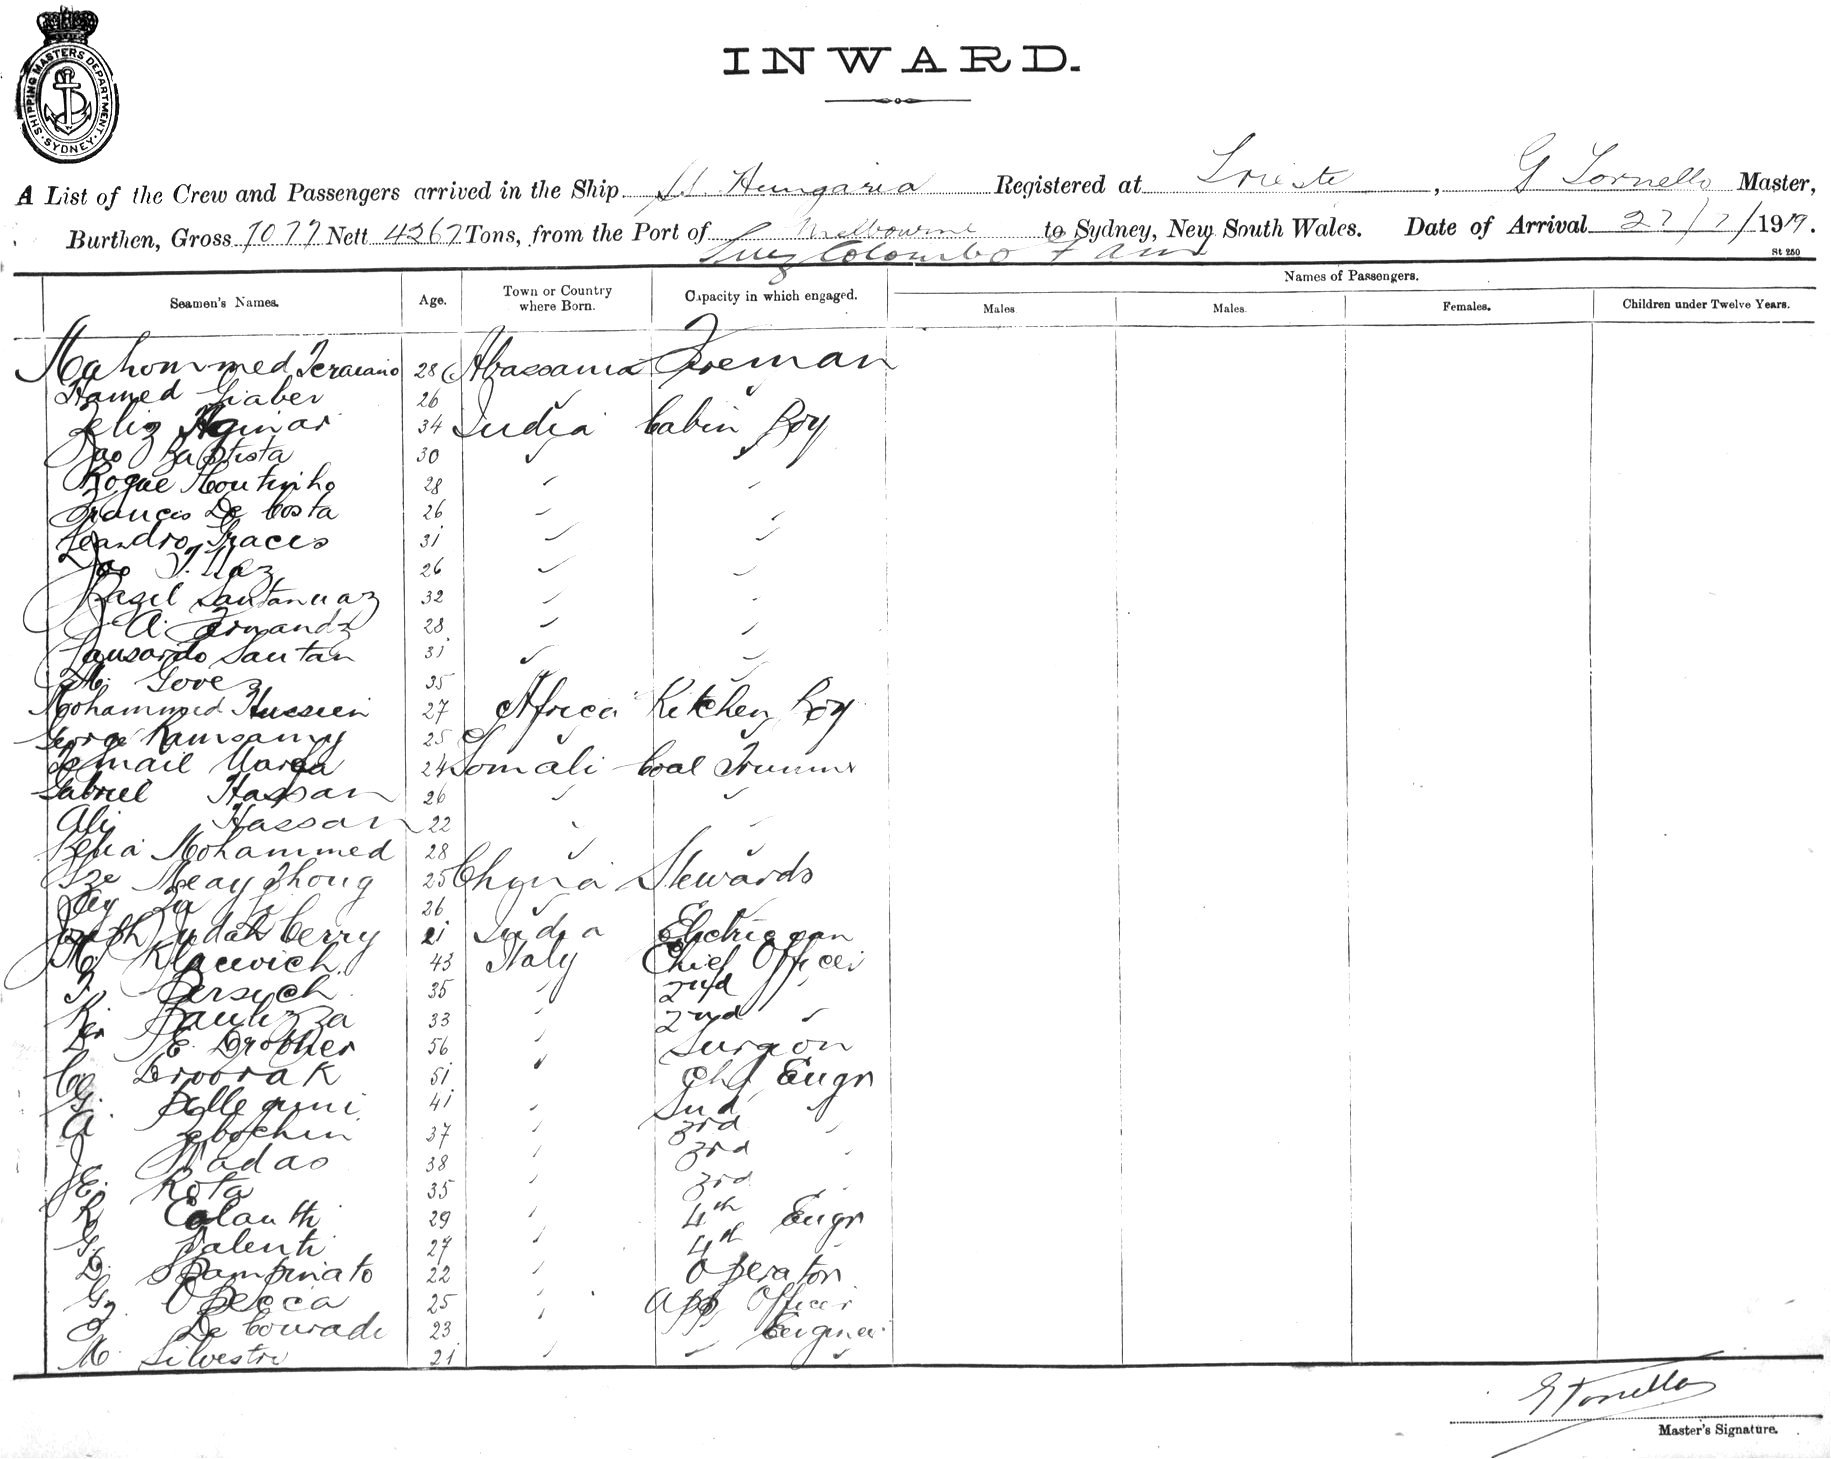 SHIPPING MASTERS DEPARTMENT · SYDNEY ·
INWARD.
A List of the Crew and Passengers arrived in the Ship SS. Hungaria Registered at Trieste, G Tornello Master,
Burthen, Gross 7077 Nett 4367 Tons, from the Port of Melbourne to Sydney, New South Wales. Date of Arrival 27/7/1919.
Suez Colombo
St 250
Seamen's Names. Age. Town or Country where Born. Capacity in which engaged. Names of Passengers.
Males Males. Females. Children under Twelve Years.
Mahommed 28 Abassania Fireman
Hamed Giaber 26 ✓ ✓
Feliz Aguiar 34 India Cabin Boy
Jao Baptista 30 ✓ ✓
Roque Moutinho 28 ✓ ✓
Francis De Costa 26 ✓ ✓
Leandro Graces 31 ✓ ✓
Jao Vaz 26 ✓ ✓
Razil Santan Vaz 32 ✓ ✓
J A. Fernandz 28 ✓ ✓
Santan 31 ✓ ✓
M. Govez 35
Mohammed Hussein 27 Africa Kitchen Boy
George Ramsamy 25 ✓ ✓
Ismail Warsa 24 Somali Coal Trimmer
Gabriel Hassan 26 ✓ ✓
Ali Hassan 22 ✓ ✓
Mohammed 28 ✓ ✓
Sze Meay Zhong 25 China Stewards
26 ✓ ✓
Joseph Judah Cerry 21 India Electrician
M. Klacevich 43 Italy Chief Officer
F. Persich 35 ✓ 2nd ✓
R. Paulizza 33 ✓ 2nd ✓
Dr E. Drobner 56 ✓ Surgeon
C. Dvorak 51 ✓ Chf Engr
G. Pellegrini 41 ✓ 2nd ✓
A Zbochin 37 ✓ 3rd ✓
J Nadas 38 ✓ 3rd ✓
E. Rota 35 ✓ 3rd ✓
R Calanthi 29 ✓ 4th Engr
G. Valenti 27 ✓ 4th
D. Spampinato 22 ✓ Operator
G. Opecca 25 ✓ App Officer
De Courade 23 ✓ Engineer
M. Silvestri 21 ✓ ✓ ✓
G Tornello
Master's Signature.